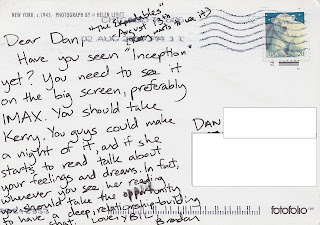 NEW YORK, c. 1945. PHOTOGRAPH BY © HELEN LEVITT
"The Expendables"
August 13th
Dear Dan,
Have you seen "Inception"
yet? You need to see it
on the big screen, preferably
IMAX. You should take
Kerry. You guys could make
a night of it, and if she
starts to read talk about
your feelings and dreams. In fact,
whenever you see her reading
you should take the opportunity
to have a deep, relationship-building
chat.
Love, y
Brandon
DAN
fotofolio